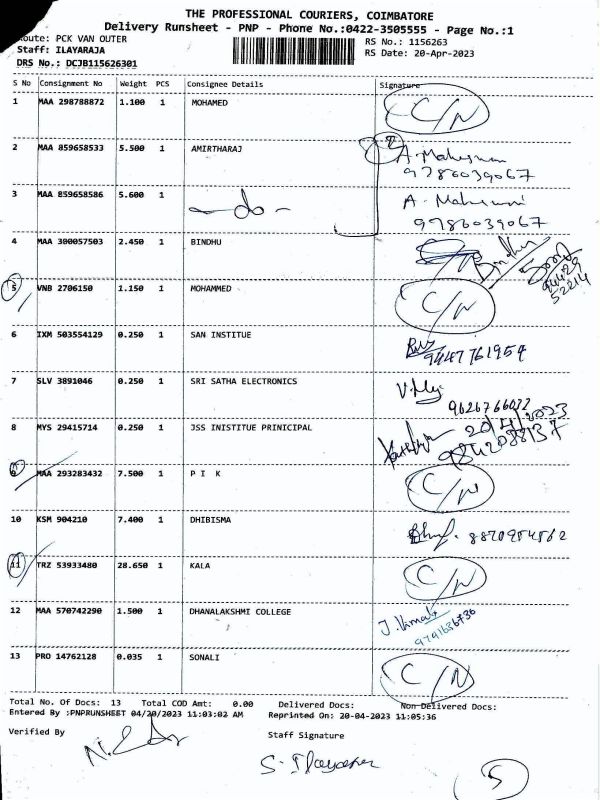 THE PROFESSIONAL COURIERS, COIMBATORE
Delivery Runsheet - PNP - Phone No.:0422-3505555 - Page No.:1
oute: PCK VAN OUTER
RS No.: 1156263
Staff: ILAYARAJA
RS Date: 20-Apr-2023
DRS No.: DCJB115626301
S No Consignment No Weight PCS Consignee Details Signature
1 MAA 298788872 1.100 1 MOHAMED C/N
2 MAA 859658533 5.500 1 AMIRTHARAJ 2 A. Maheswari
9786039067
3 MAA 859658586 5.600 1 -do- A. Maheswari
9786039067
4 MAA 300057503 2.450 1 BINDHU Bindhu
94429
52214
5 VNB 2706150 1.150 1 MOHAMMED C/N
6 IXM 503554129 0.250 1 SAN INSTITUE
9447761954
7 SLV 3891046 0.250 1 SRI SATHA ELECTRONICS
9626766032
8 MYS 29415714 0.250 1 JSS INISTITUE PRINICIPAL 20/4/2023
9842088137
9 MAA 293283432 7.500 1 P I K C/N
10 KSM 904210 7.400 1 DHIBISMA 8870954562
11 TRZ 53933480 28.650 1 KALA C/N
12 MAA 570742290 1.500 1 DHANALAKSHMI COLLEGE J. Vimala
9791636736
13 PRO 14762128 0.035 1 SONALI C/N
Total No. Of Docs: 13 Total COD Amt: 0.00 Delivered Docs: Non Delivered Docs:
Entered By :PNPRUNSHEET 04/20/2023 11:03:02 AM Reprinted On: 20-04-2023 11:05:36
Verified By Staff Signature
S. Ilayaraja
5